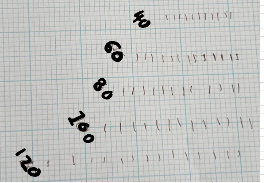 40
60
80
100
120